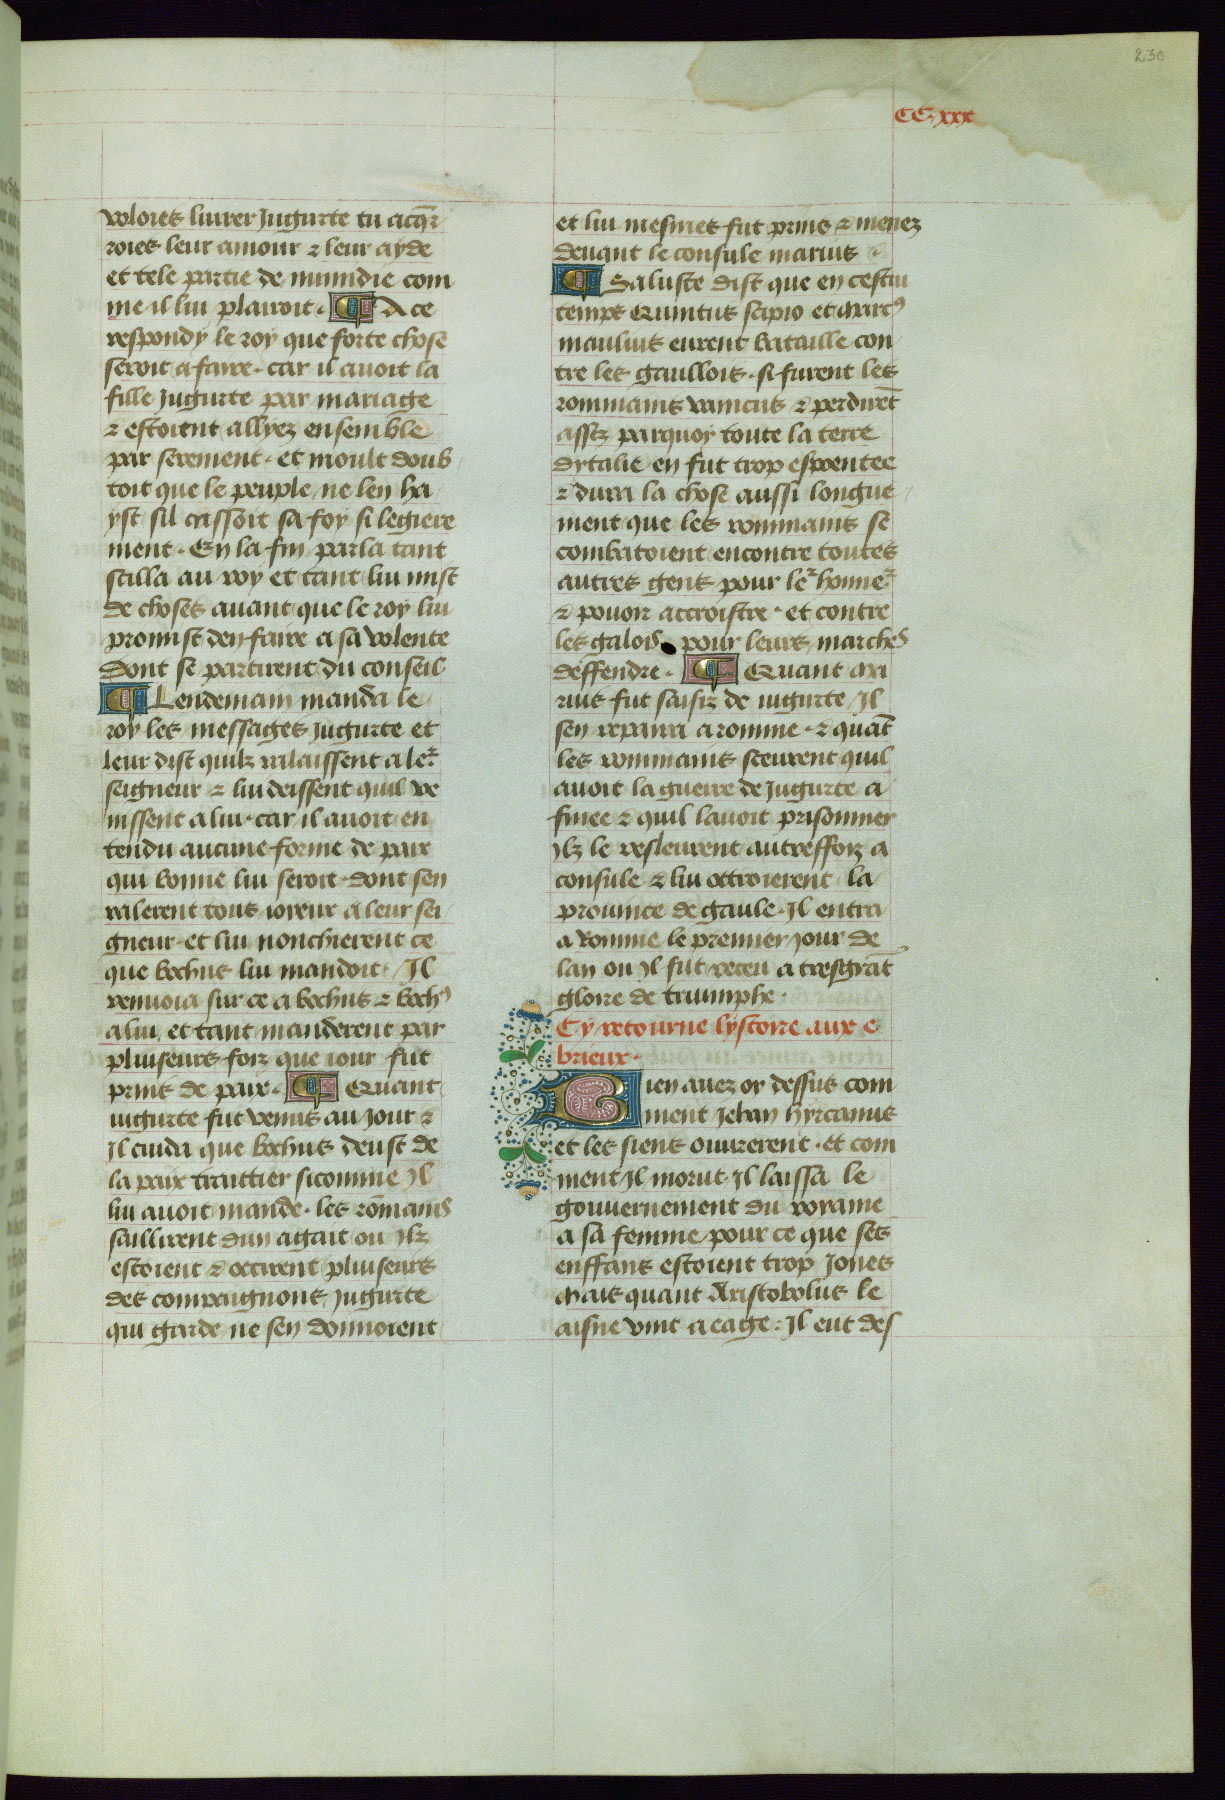 230
CC xxx
voloies livrer Jugurte tu acq̃r
roies leur amour ⁊ leur ayde
et tele partie de numidie com
me il lui plairoit · ¶ A ce
respondy le roy que forte chose
seroit a faire · car il avoit la
fille Jugurte par mariage
⁊ estoient allyez ensemble
par serement · et moult doub
toit que le peuple ne len ha
yst sil cassoit sa foy si legiere
ment · En la fin parla tant
scilla au roy et tant lui mist
de choses avant que le roy lui
promist den faire a sa volente
dont se partirent du conseil
¶ Lendemain manda le
roy les messages Jugurte et
leur dist quilz ralaissent a leᷣ
seigneur ⁊ lui deissent quil ve
nissent a lui · car il avoit en
tendu aucune forme de paix
qui bonne lui seroit · dont sen
ralerent tous ioyeux a leur sei
gneur · et lui nonchierent ce
que bochus lui mandoit · Il
renvoia sur ce a bochus ⁊ bochꝰ
a lui et tant manderent par
pluiseurs foiz que iour fut
prins de paix · ¶ Quant
iugurte fut venus au Jour ⁊
Il cuida que bochus deust de
la paix traittier sicomme Il
lui avoit mande · les rõmains
saillirent dun agait ou ilz
estoient ⁊ occirent pluiseurs
des compaignons Jugurte
qui garde ne sen donnoient
et lui mesmes fut prins ⁊ menez
devant le consule marius
¶ Saluste dist que en cestui
temps Quintus scipio et Marcꝰ
maulius eurent bataille con
tre les gaullois · si furent les
rommains vaincus ⁊ perdirẽt
assez parquoy toute la terre
dytalie en fut trop espoentee
⁊ dura la chose aussi longue
ment que les rommains se
combatoient encontre toutes
autres gens pour leᷣ honneᷣ
⁊ pouoir accroistre · et contre
les galois pour leurs marches
deffendre · ¶ Quant Ma
rius fut saisiz de iugurte Il
sen repaira a romme · ⁊ quãt
les rommains sceurent quil
avoit la guerre de Jugurte a
finee ⁊ quil lavoit prisonnier
Ilz le resleurent autreffoiz a
consule ⁊ lui ottroierent la
province de gaule · Il entra
a Romme le premier Jour de
lan ou Il fut receu a tresgrãt
gloire de triumphe ·
Cy retourne lystoire aux e
brieux ·
Bien avez or dessus com
ment Jehan hyrcanus
et les siens ouvrerent · et com
ment Il morut Il laissa le
gouvernement du royame
a sa femme pour ce que ses
enffans estoient trop Jones
Mais quant Aristobolus le
aisne vint a eage · Il eut des